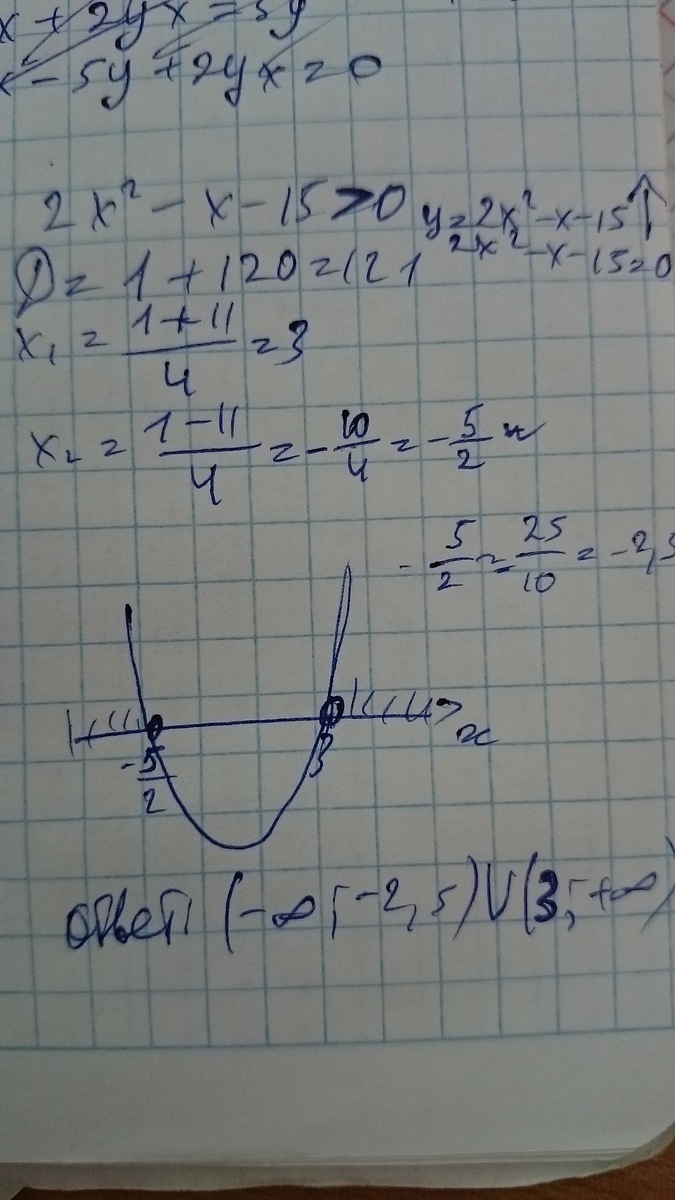 x + 2yx = 5y
x - 5y + 2yx = 0
2x² - x - 15 > 0
y = 2x² - x - 15 ↑
2x² - x - 15 = 0
D = 1 + 120 = 121
x₁ = (1 + 11)/4 = 3
x₂ = (1 - 11)/4 = -10/4 = -5/2
-5/2 = 25/10 = -2,5
-5/2 3 x
ответ: (-∞; -2,5) U (3; +∞)